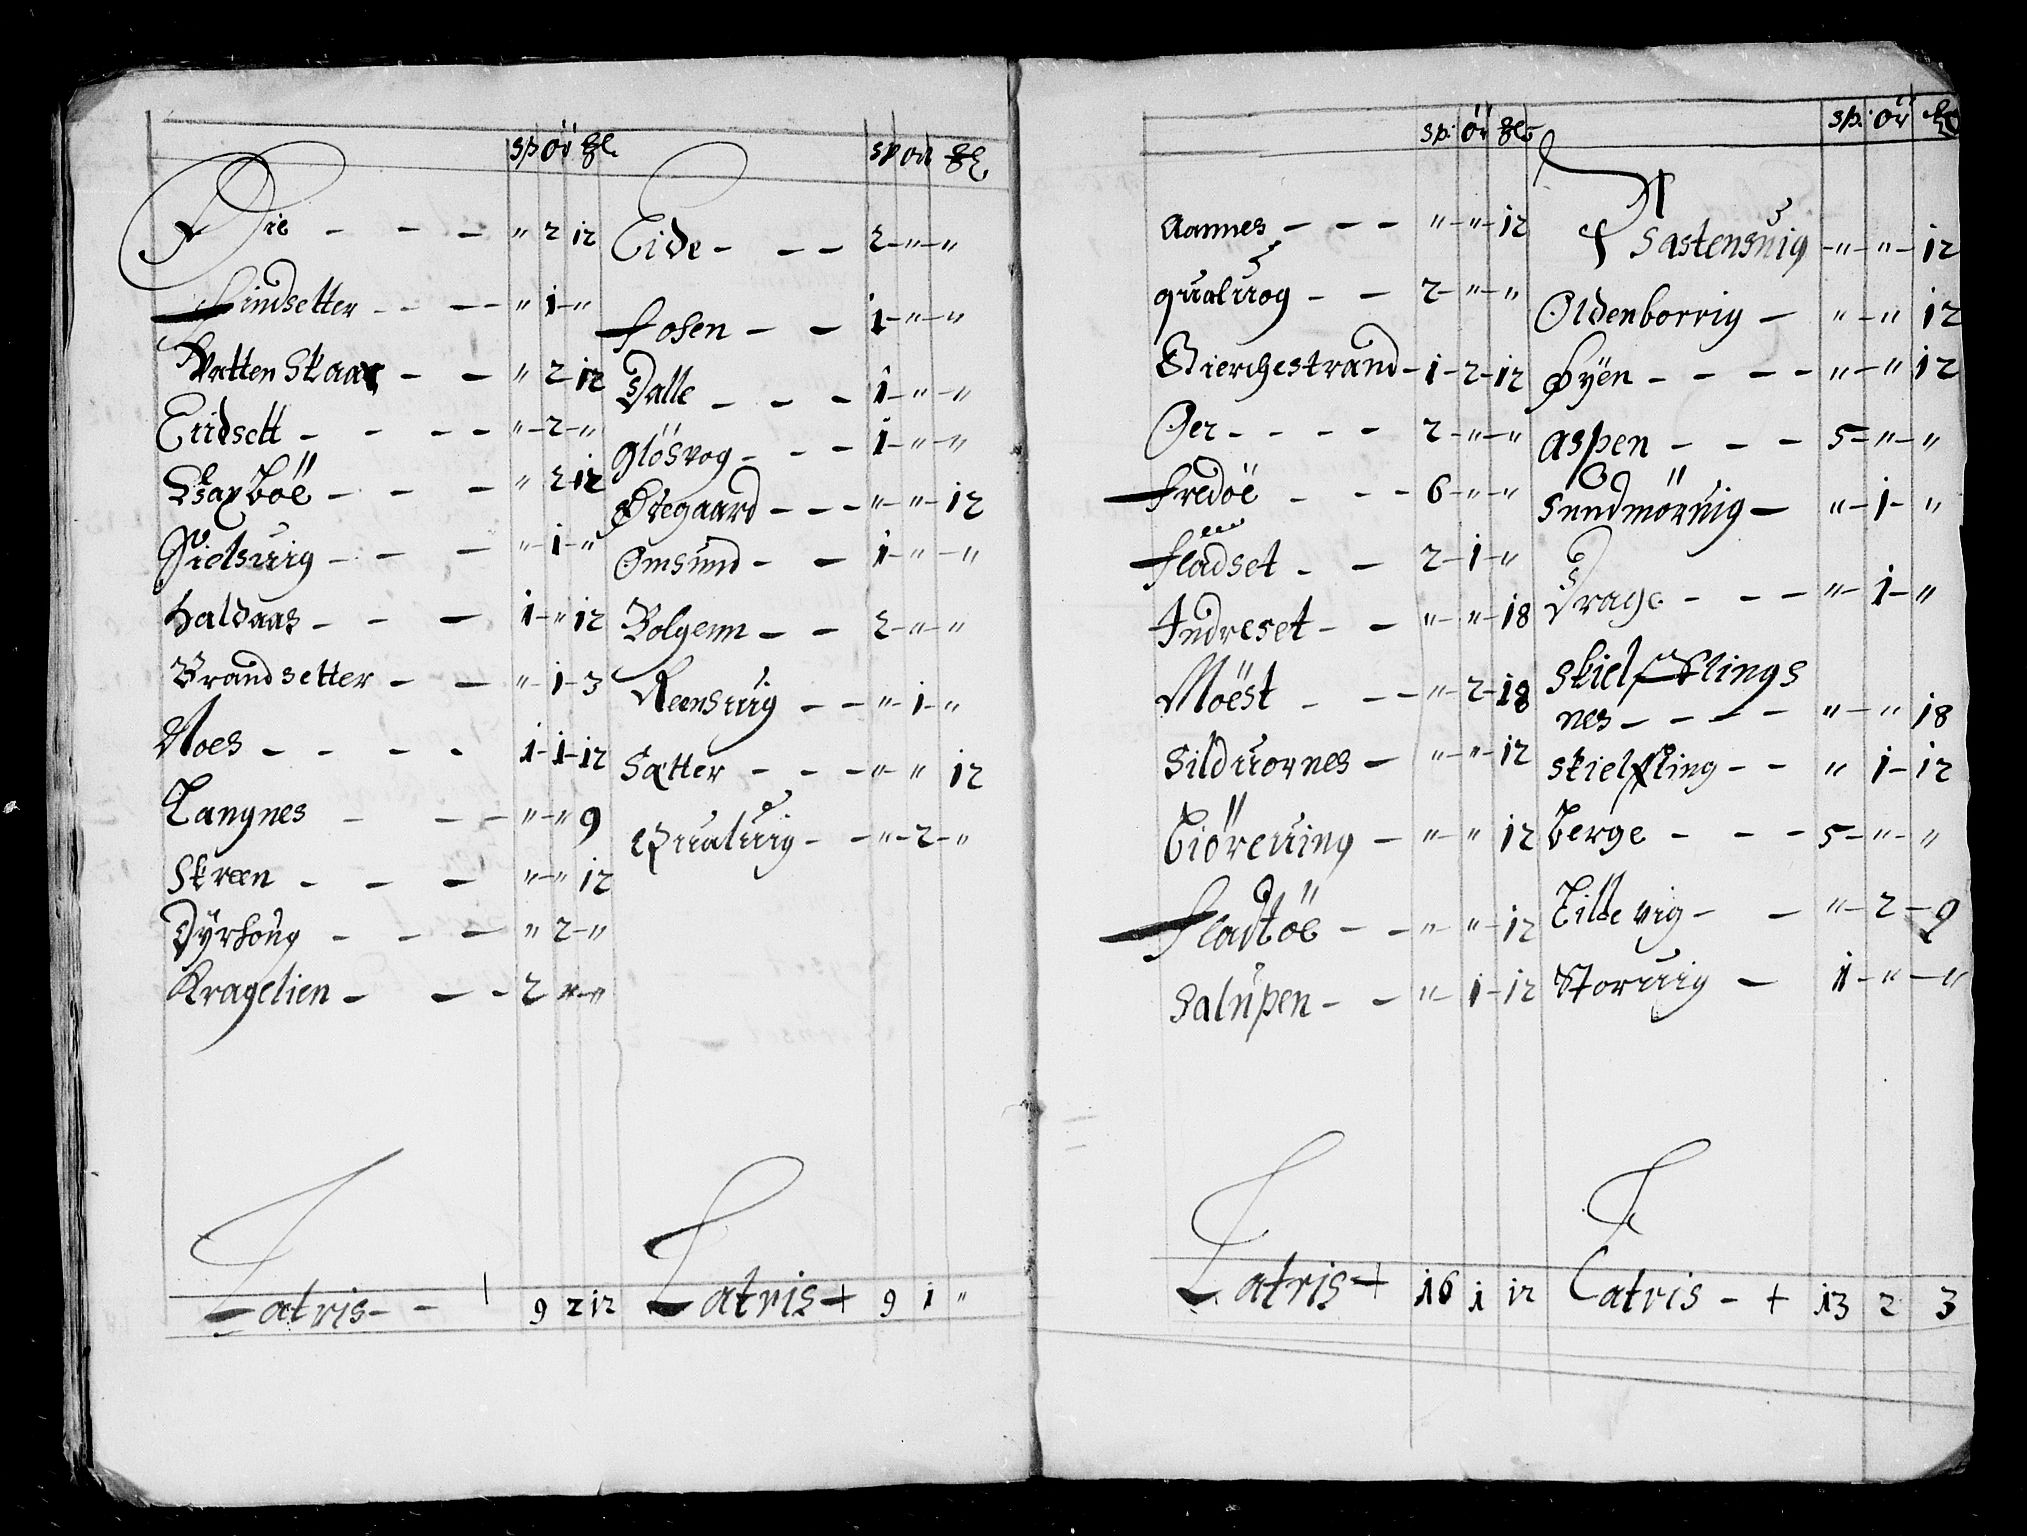 sp ör
Die - - - " 2 12
Findsetter - - - " 1 "
Vatten Skaar - - " 2 12
Eidsett - - - - " 2 "
Skarböe - - - " 2 12
Gielsuiig - - - " 1 "
Haldaas - - - 1 " 12
Brandsetter - - " 1 3
Noes - - - - 1 1 12
Langnes - - - " " 9
Skreen - - - " " 12
Dyrhoug - - - " 2 "
Kragelien - - - 2 " "
Latris - - + 9 2 12
sp
Eide - - - 2 " "
Fosen - - 1 " "
Dalle - - - 1 " "
Glösvog - - - 1 " "
Øregaard - - - " " 12
Omsund - - 1 " "
Bolgenn - - 2 " "
Reensuiig - - " 1 "
Sætter - - - " " 12
Qualuiig - - " 2 "
Latris + 9 1 "
sp: ör
Aannes - - - " " 12
qualuog - - 2 " "
Bierchestrand - 1 2 12
Oer - - - - 2 " "
Fredöe - - - 6 " "
Fladset - - 2 1 "
Indreset - - " " 18
Moëst - - - " 2 18
Silduornes - " " 12
Tiöreuing - " " 12
Fladtöe - - " " 12
Salupen - - " 1 12
Latris + 16 1 12
sp: ör
Sastensuig - " " 12
Oldenborrig - " " 12
Øyën - - - - " " 12
Aspen - - - 5 " "
Sundmöruig - " 1 "
Drage - - - " 1 "
Skiel Flings
nes - - - - " " 18
Skielfling - - " 1 12
Berge - - - 5 " "
Tillevig - - " 2 9
Storuiig - 1 " "
Latris - + 13 2 3